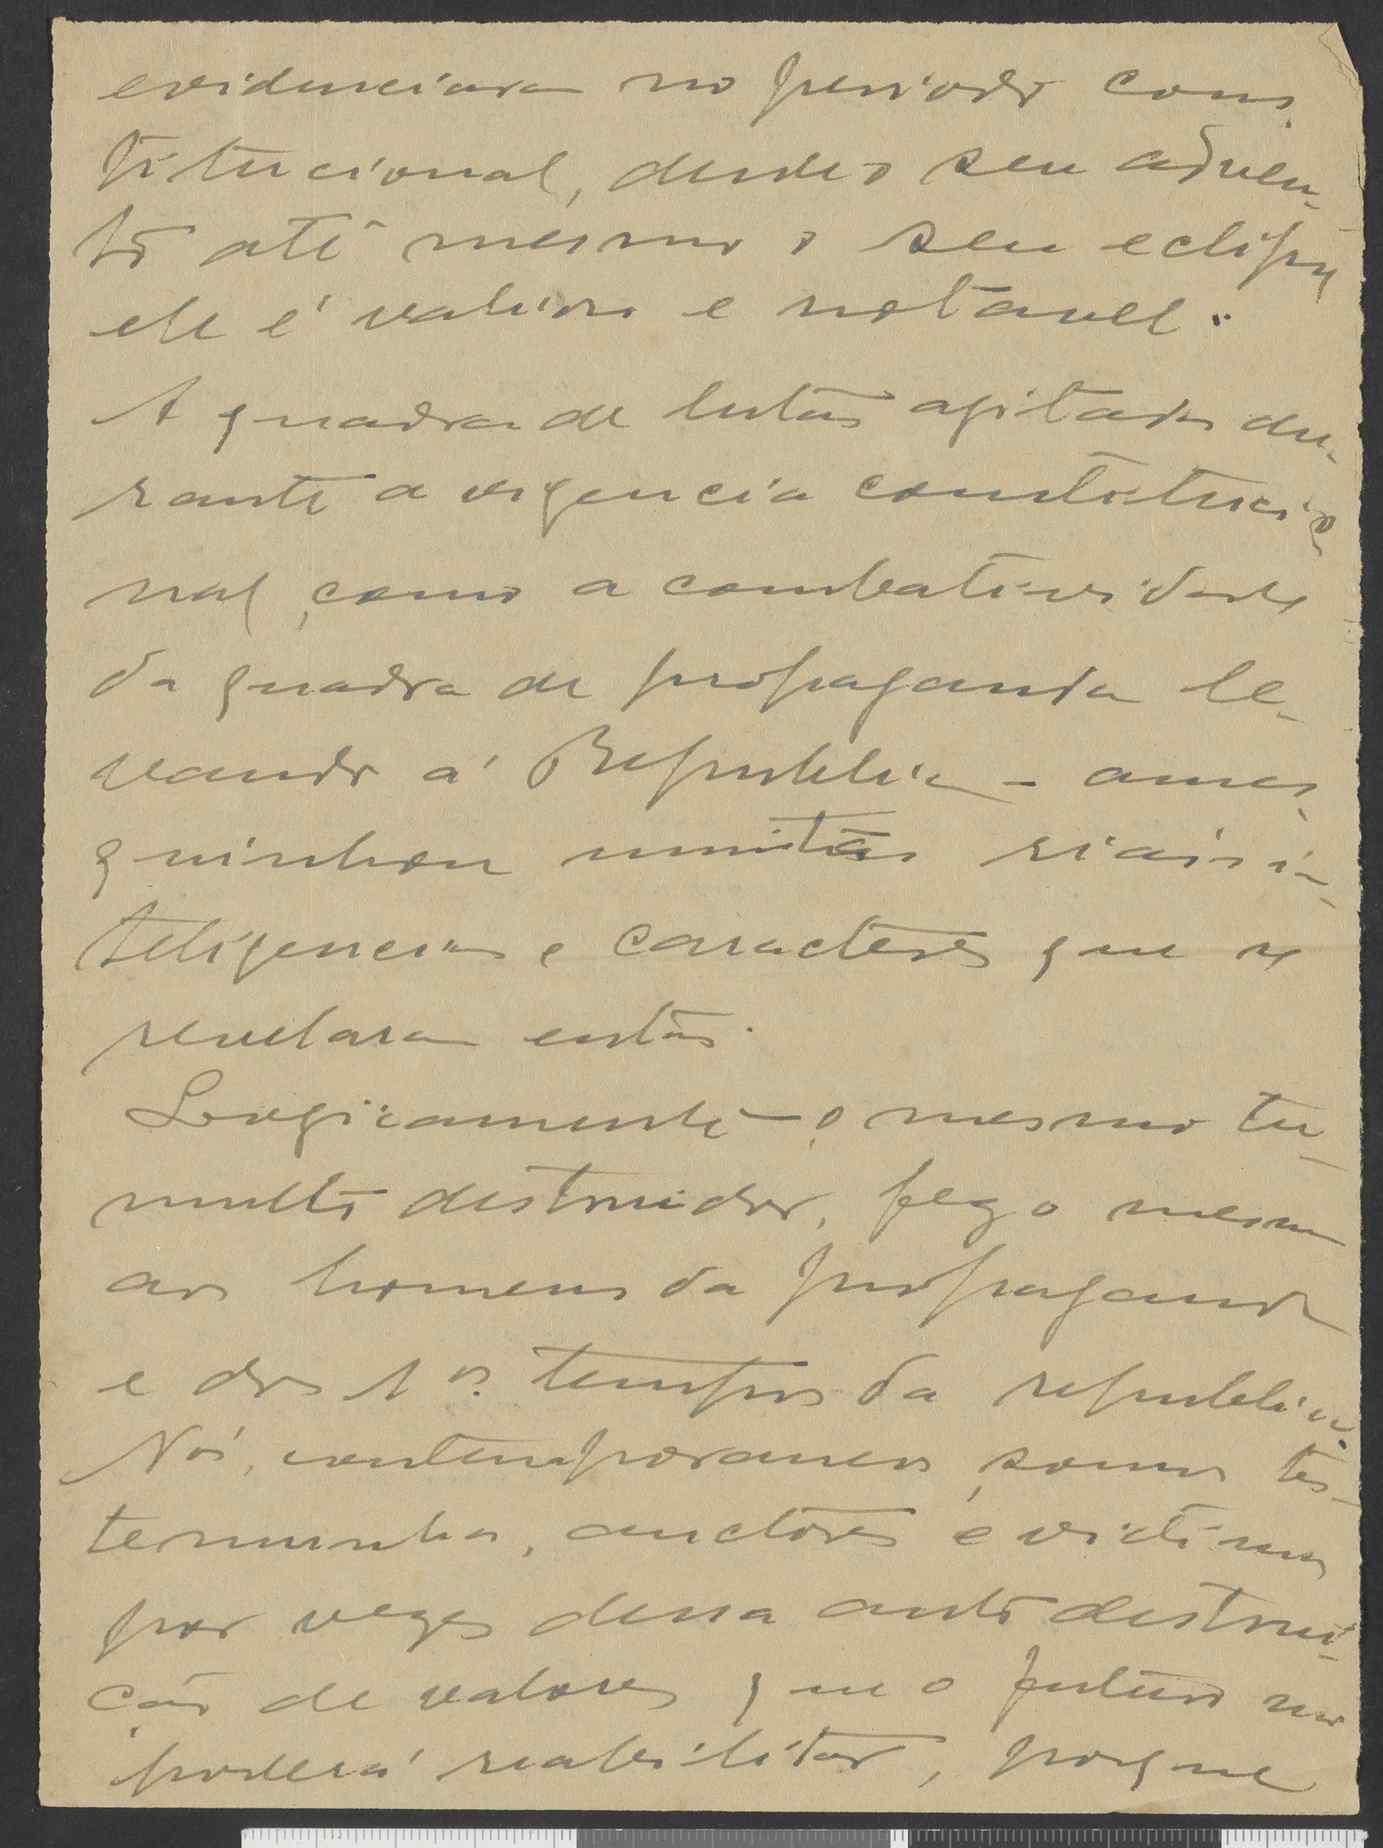 evidenciara no periodo cons-
titucional, desde o seu adven-
to até mesmo o seu eclipse
ele é valioso e notavel.
A quadra de lutas agitadas du-
rante a vigencia constitucio
nal, como a combatividade
da quadra de propaganda le-
vando á Republica - ames-
quinhou muitas riais in-
teligencias e caracteres que se
revelaram então.
Logicamente - o mesmo tu-
multo destruidor, fez o mesmo
aos homens da propaganda
e dos 1os. tempos da republica.
Nós, contemporaneos, somos tes-
temunhas, auctores e victimas
por vezes dessa auto destrui-
cão de valores que o futuro
poderá reabilitar, porque